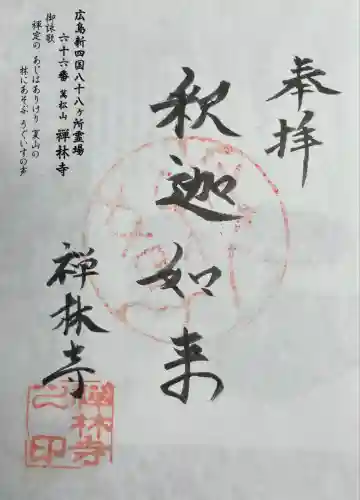 奉拝
釈迦如来
禅林寺
広島新四国八十八ヶ所霊場
六十六番 萬松山 禅林寺
御詠歌
禅定の あじはありけり 夏山の
林にあそぶ うぐいすの声
禅林寺
之印